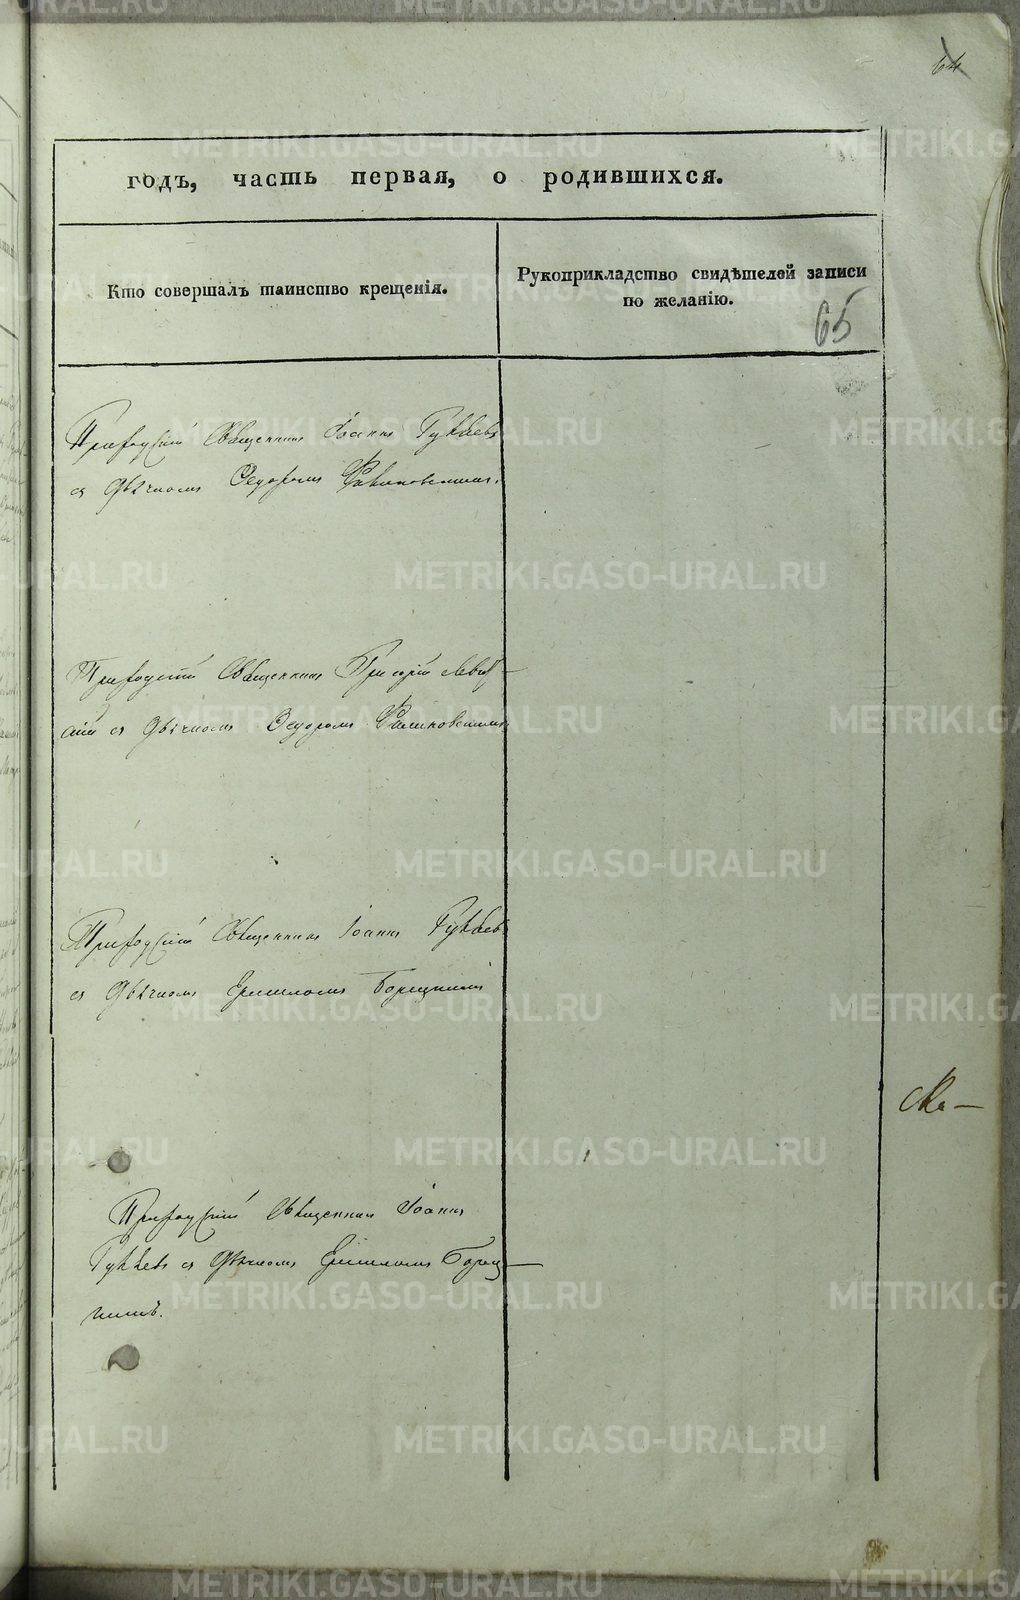 64
годъ, часть первая, о родившихся.
Кто совершалъ таинство крещенія.
Рукоприкладство свидѣтелей записи
по желанію.
65
Приходскій Священникъ Іоаннъ
съ Дьячкомъ Ѳедоромъ
Приходскій Священникъ Григорій Левиц-
кій съ Дьячкомъ Ѳедоромъ
Приходскій Священникъ Іоаннъ
съ Дьячкомъ Ермиломъ Борецкимъ
Приходскій Священникъ Іоаннъ
съ Дьячкомъ Ермиломъ Борец-
кимъ.
METRIKI.GASO-URAL.RU